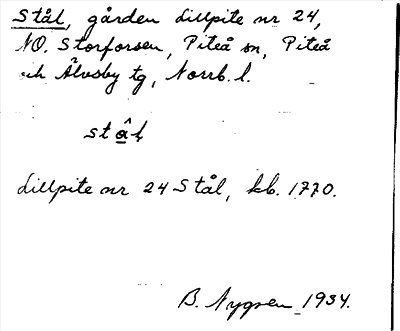 Stål, gården Lillpite nr 24,
NO. Storforsen, Piteå sn, Piteå
och Älvsby tg, Norrb. l.
Lillpite nr 24 Stål, kb. 1770.
B. Nygren 1934.